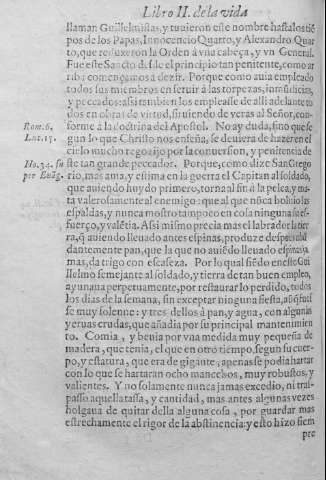 Libro II. de la vida
llaman Guillelmistas, y tuuieron este nombre hasta los tiẽ
pos de los Papas, Innocencio Quarto, y Alexandro Quar
to, que reduxeron la Orden à vna cabeça, y vn General.
Fue este Sancto dende el principio tan penitente, como ar
riba començamos a dezir. Porque como auia empleado
todos sus miembros en seruir à las torpezas, inmundicias,
y peccados: assi tambien los empleasse de alli adelante to
dos en obras de virtud, siruiendo de veras al Señor, con-
Rom. 6. forme à la doctrina del Apostol. No ay duda, sino que se
Luc. 15. gun lo que Christo nos enseña, se deuiera de hazer en el
cielo mucho regozijo por la conuersion, y penitencia de
Ho. 34. su ste tan grande peccador. Porque, como dize San Grego
per Euãg. rio, mas ama, y estima en la guerra el Capitan al soldado,
que auiendo huydo primero, torna al fin à la pelea, y ma-
ta valerosamente al enemigo: que al que nũca boluio las
espaldas, y nunca mostro tampoco en cosa ninguna su es-
fuerço, y valẽtia. Assi mismo precia mas el labrador la tier
ra, q̃ auiendo lleuado antes espinas, produze despues abũ
dantemente pan, que la que no auiẽdo lleuado espinas ja
mas, da trigo con escaseza. Por lo qual siẽdo en este Gui
llelmo semejante al soldado, y tierra de tan buen empleo,
ayunaua perpetuamente, por restaurar lo perdido, todos
los dias de la semana, sin exceptar ninguna fiesta, aũq̃ fues
se muy solenne: y tres dellos à pan, y agua, con algunas
yeruas crudas, que añadia por su principal mantenimien
to. Comia, y benia por vna medida muy pequeña de
madera, que tenia, el que en otro tiempo, segun su cuer-
po, y estatura, que era de gigante, apenas se podia hartar
con lo que se hartaran ocho mancebos, muy robustos, y
valientes. Y no solamente nunca jamas excedio, ni tras-
passò aquella tassa, y cantidad, mas antes algunas vezes
holgaua de quitar della alguna cosa, por guardar mas
estrechamente el rigor de la abstinencia: y esto hizo siem
pre